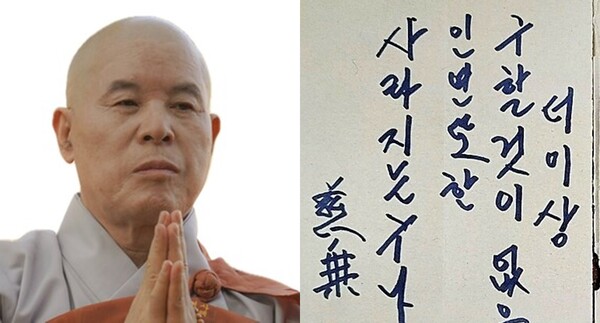 더이상
구할것이 없으
인연또한
사라지는구나
慈乘